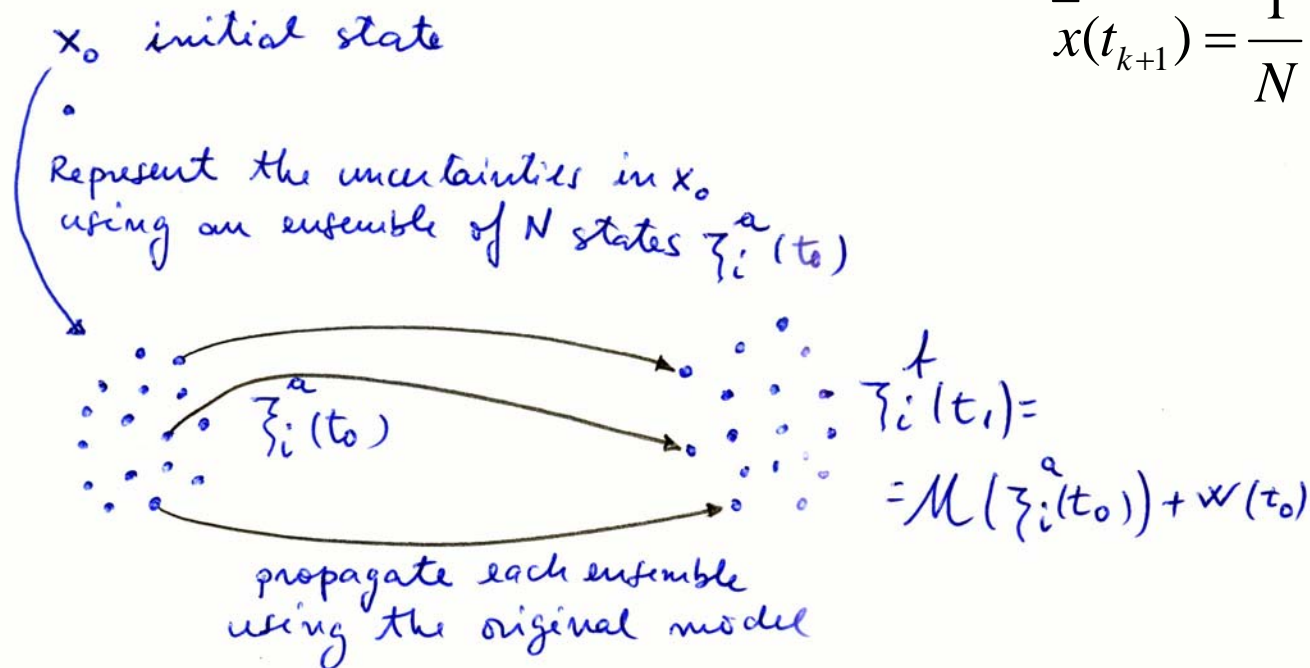 x₀ initial state
x̄(t_{k+1}) = 1/N
Represent the uncertainties in x₀
using an ensemble of N states ξᵢᵃ(t₀)
ξᵢᵃ(t₀)
ξᵢᶠ(t₁)=
=M(ξᵢᵃ(t₀))+w(t₀)
propagate each ensemble
using the original model